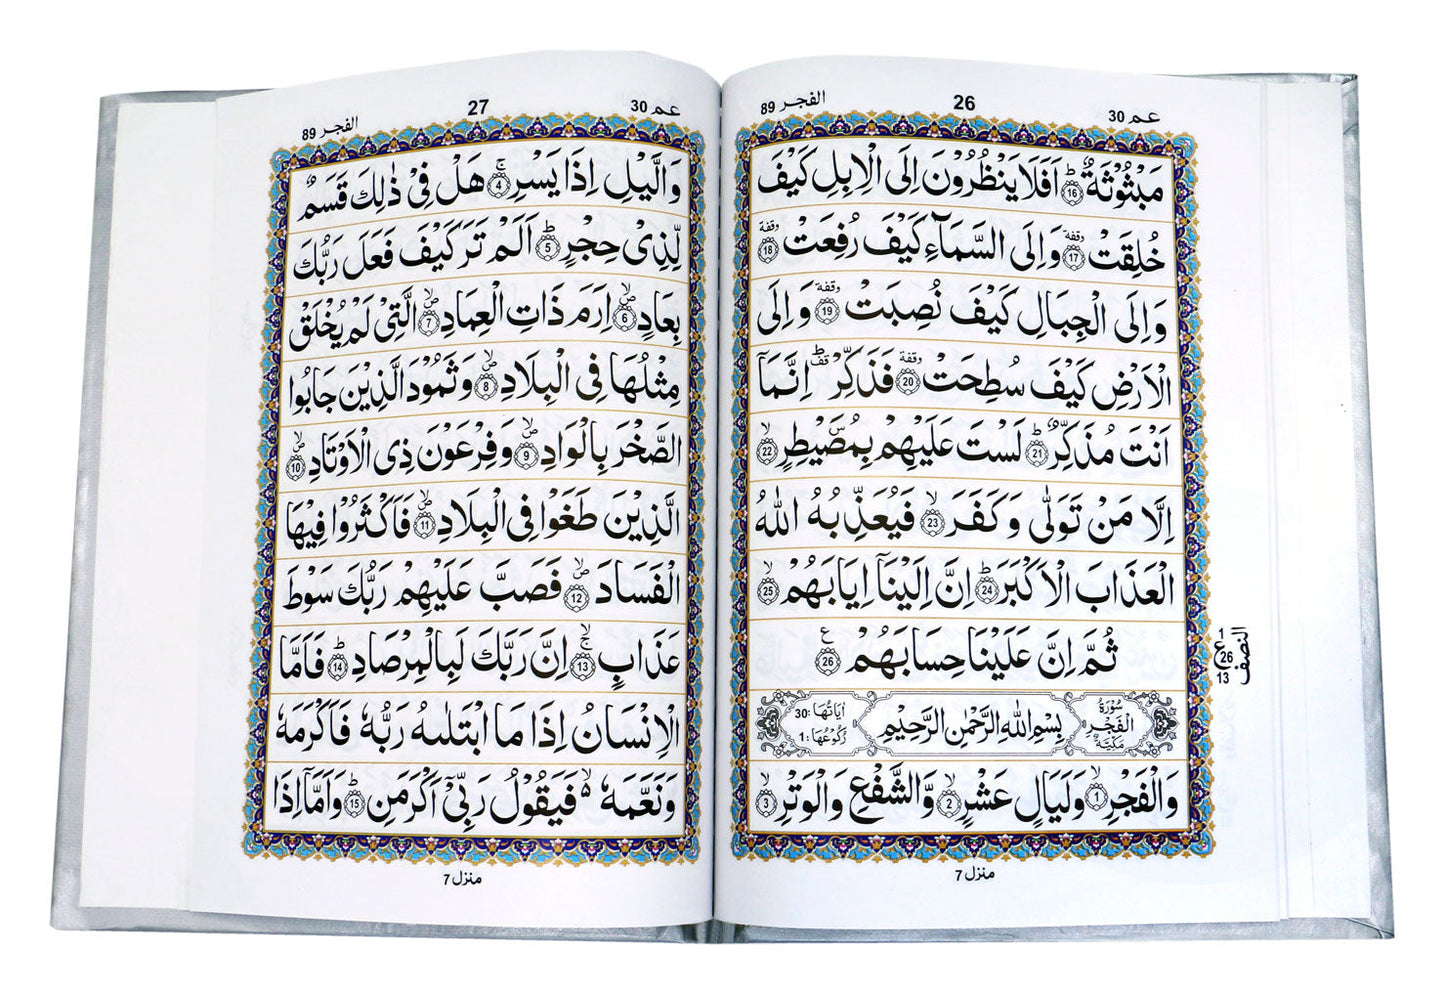 الفجر 89
26
عم 30
مَبْثُوْثَةٌ ؕ ۝16 اَفَلَا يَنْظُرُوْنَ اِلَى الْاِبِلِ كَيْفَ
خُلِقَتْ ۝17 وقفة وَاِلَى السَّمَآءِ كَيْفَ رُفِعَتْ ۝18 وقفة
وَاِلَى الْجِبَالِ كَيْفَ نُصِبَتْ ۝19 وقفة وَاِلَى
الْاَرْضِ كَيْفَ سُطِحَتْ ۝20 وقفة فَذَكِّرْ ؕ قف اِنَّمَاۤ
اَنْتَ مُذَكِّرٌ ؕ ۝21 لَسْتَ عَلَيْهِمْ بِمُصَۜيْطِرٍ ۙ ۝22
اِلَّا مَنْ تَوَلّٰى وَكَفَرَ ۙ ۝23 فَيُعَذِّبُهُ اللّٰهُ
الْعَذَابَ الْاَكْبَرَ ؕ ۝24 اِنَّ اِلَيْنَاۤ اِيَابَهُمْ ۙ ۝25
ثُمَّ اِنَّ عَلَيْنَا حِسَابَهُمْ ۝26 ع
النصف
ع
26
13
سُوْرَةُ الْفَجْرِ مَكِّيَّةٌ
بِسْمِ اللّٰهِ الرَّحْمٰنِ الرَّحِيْمِ
اٰيَاتُهَا :30
رُكُوْعُهَا :1
وَالْفَجْرِ ۙ ۝1 وَلَيَالٍ عَشْرٍ ۙ ۝2 وَّالشَّفْعِ وَالْوَتْرِ ۙ ۝3
منزل 7
الفجر 89
27
عم 30
وَالَّيْلِ اِذَا يَسْرِ ۚ ۝4 هَلْ فِيْ ذٰلِكَ قَسَمٌ
لِّذِيْ حِجْرٍ ؕ ۝5 اَلَمْ تَرَ كَيْفَ فَعَلَ رَبُّكَ
بِعَادٍ ۙ ۝6 اِرَمَ ذَاتِ الْعِمَادِ ۙ ۝7 الَّتِيْ لَمْ يُخْلَقْ
مِثْلُهَا فِي الْبِلَادِ ۙ ۝8 وَثَمُوْدَ الَّذِيْنَ جَابُوا
الصَّخْرَ بِالْوَادِ ۙ ۝9 وَفِرْعَوْنَ ذِي الْاَوْتَادِ ۙ ۝10
الَّذِيْنَ طَغَوْا فِي الْبِلَادِ ۙ ۝11 فَاَكْثَرُوْا فِيْهَا
الْفَسَادَ ۙ ۝12 فَصَبَّ عَلَيْهِمْ رَبُّكَ سَوْطَ
عَذَابٍ ۚ ۝13 اِنَّ رَبَّكَ لَبِالْمِرْصَادِ ؕ ۝14 فَاَمَّا
الْاِنْسَانُ اِذَا مَا ابْتَلٰىهُ رَبُّهٗ فَاَكْرَمَهٗ
وَنَعَّمَهٗ ۙ۬ فَيَقُوْلُ رَبِّيْۤ اَكْرَمَنِ ؕ ۝15 وَاَمَّاۤ اِذَا
منزل 7